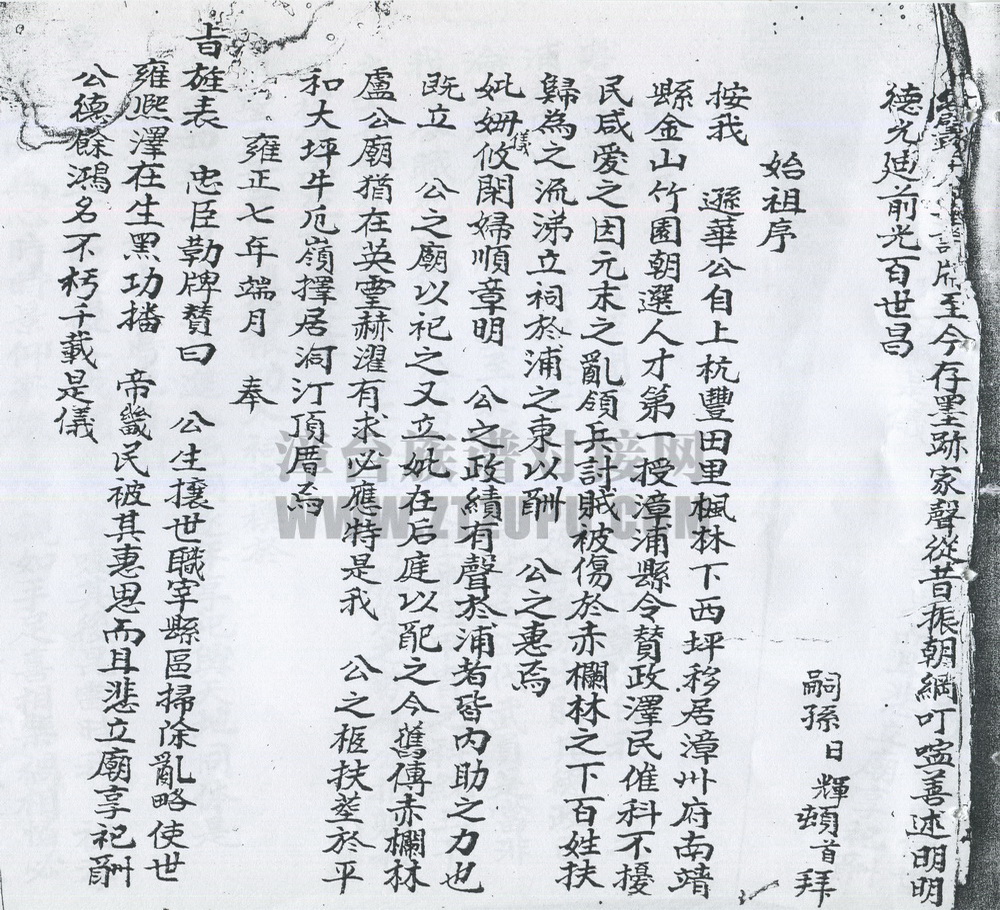 版至今存墨跡家聲從昔振朝綱叮嚀善述明明
德光廸前光百世昌
嗣孫日輝頓首拜
始祖序
按我 遜華公自上杭豐田里楓林下西坪移居漳州府南靖
縣金山竹園朝選人才第一授漳浦縣令賛政澤民催科不擾
民咸愛之因元末之亂領兵討賊被傷於赤欄林之下百姓扶
歸為之流涕立祠於浦之東以酬 公之惠焉
妣姍儀攸閑婦順章明 公之政績有聲於浦者皆內助之力也
既立 公之廟以祀之又立妣在后庭以配之今舊傳赤欄林
盧公廟猶在英靈赫濯有求必應特是我 公之柩扶塟於平
和大坪牛厄嶺擇居洞汀頂厝焉
雍正七年端月 奉
旨旌表 忠臣勅牌賛曰 公生攘世職宰縣區掃除亂略使世
雍熈澤在生黑功播 帝畿民被其惠思而且悲立廟享祀酬
公德餘鴻名不朽千載是儀
漳台族谱对接网
WWW.ZTZUPU.COM